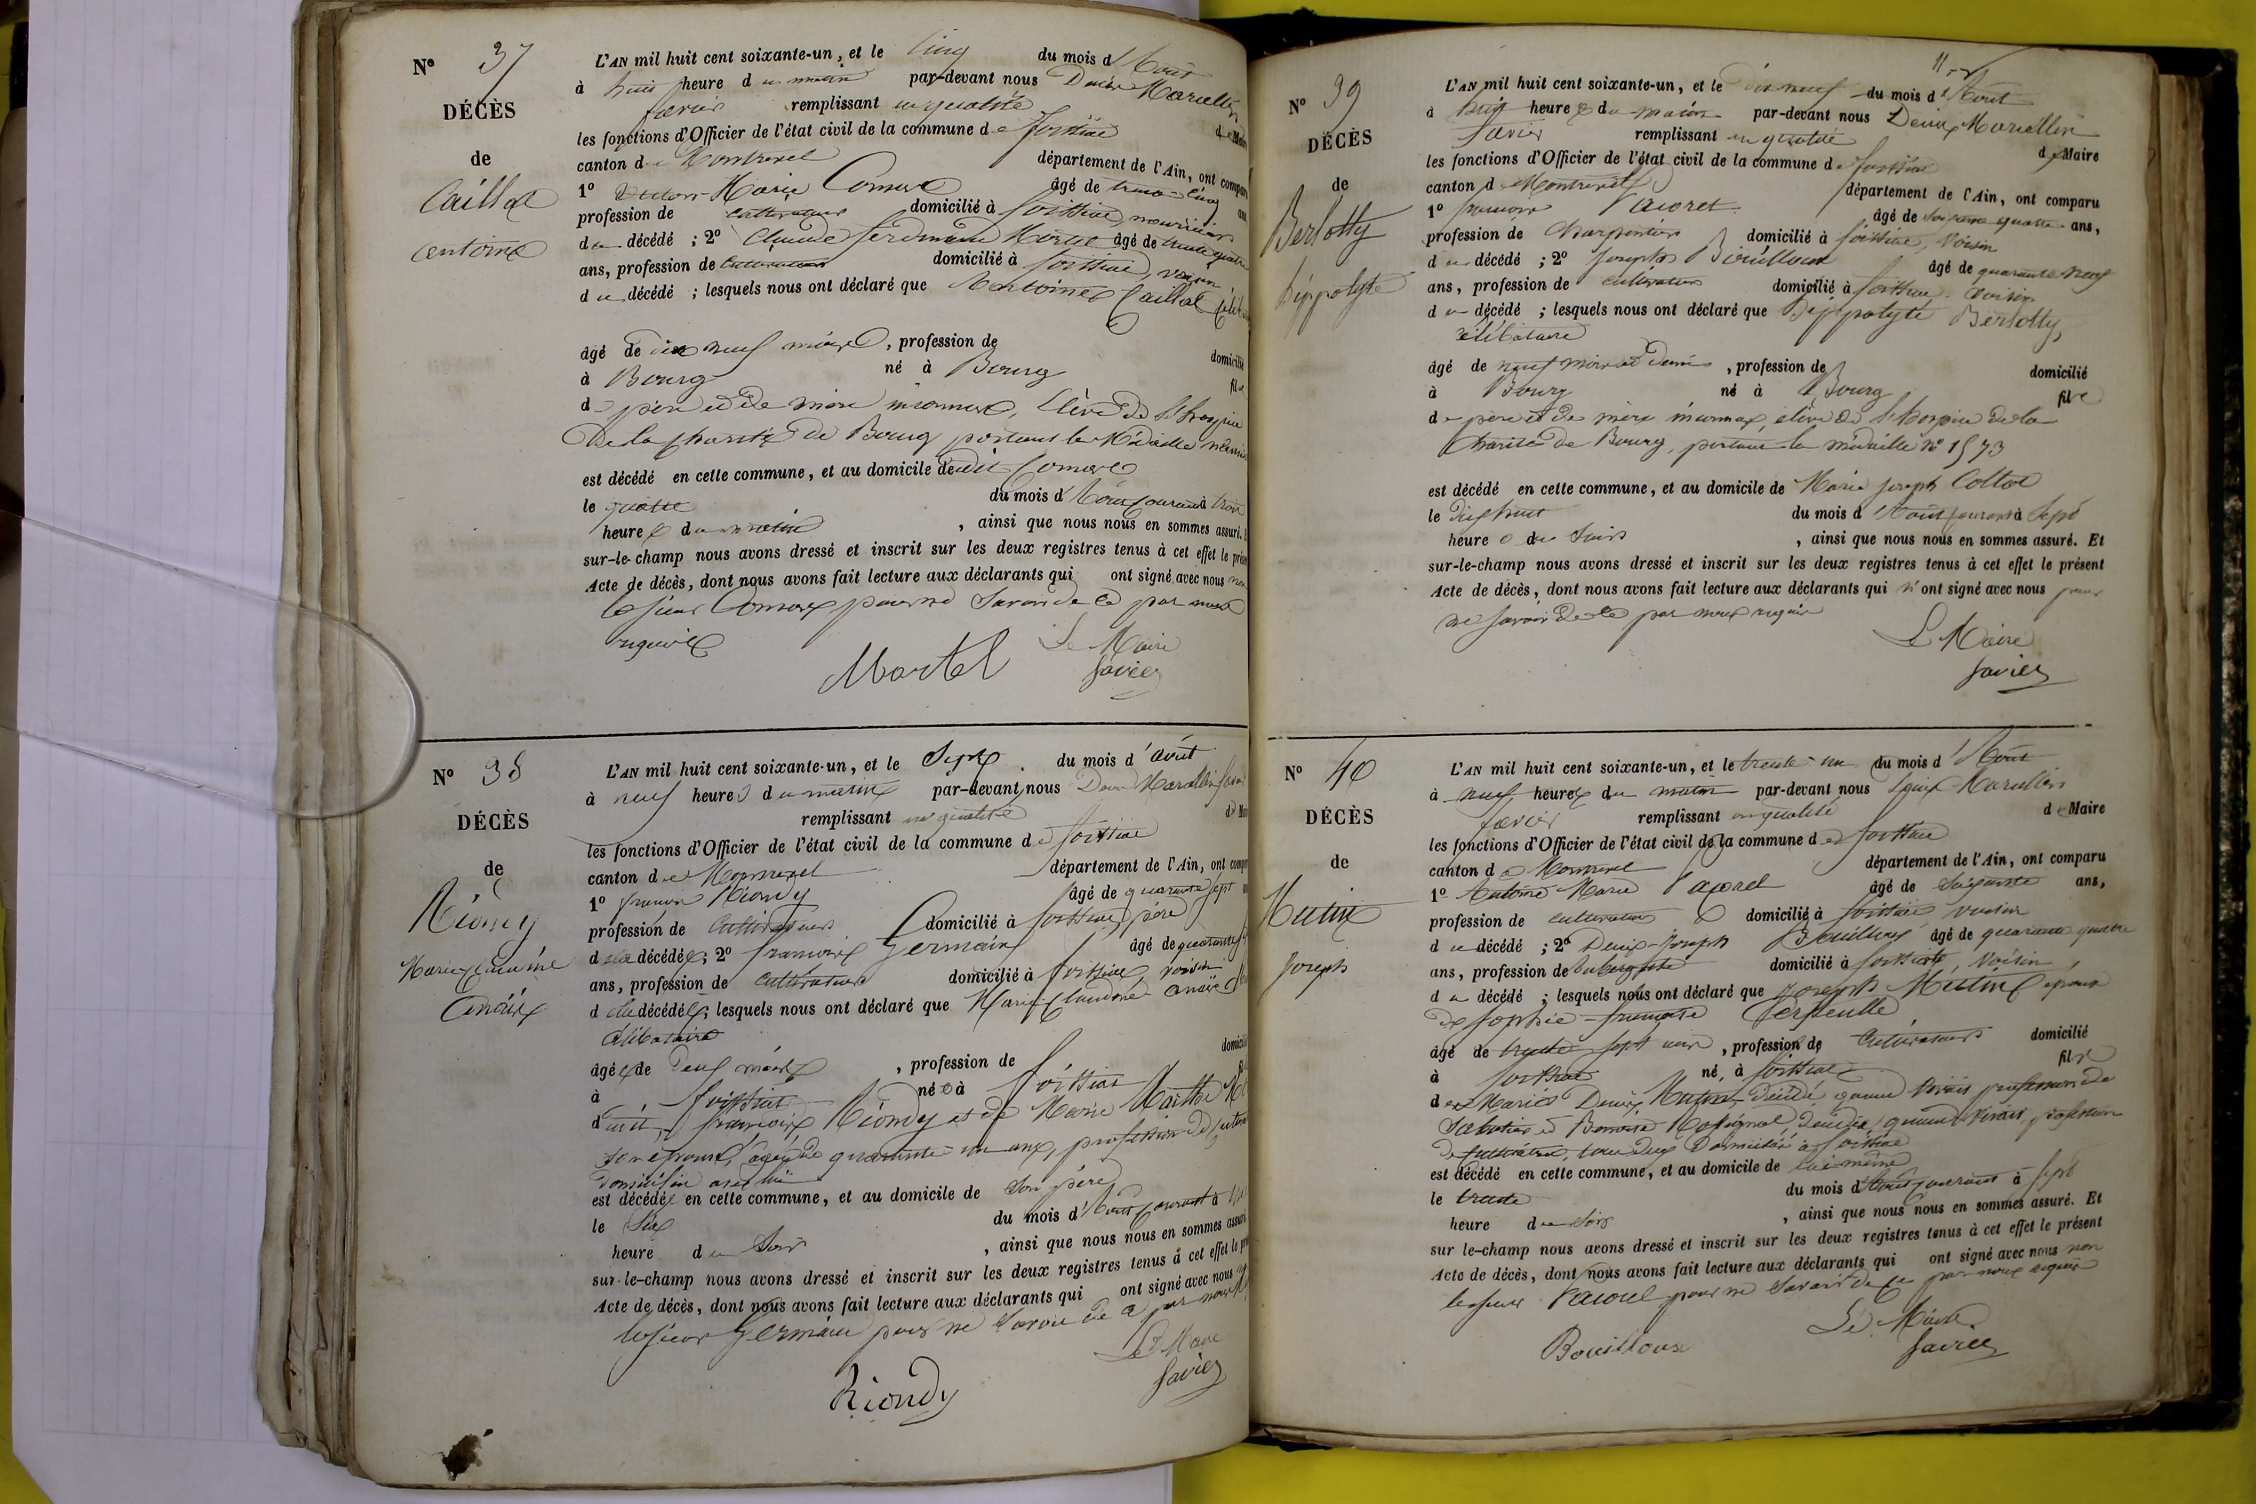 N° 37
DÉCÈS
de
Caillat
antoine
L'AN mil huit cent soixante-un, et le Cinq du mois d'Août
à huit heure du matin par-devant nous Denis Marcellin
favier remplissant en qualité de Maire
les fonctions d'Officier de l'état civil de la commune de foissiat
canton de Montrevel département de l'Ain, ont compar
1° Marie Comere âgé de trente-Cinq an
profession de cultivateur domicilié à foissiat, nourricier
du décédé ; 2° Claude ferdinand Martel âgé de trente quatre
ans, profession de Cultivateur domicilié à foissiat, voisin
du décédé ; lesquels nous ont déclaré que Antoine Caillat
âgé de dix neuf mois, profession de domicilié
à Bourg né à Bourg fils
de père et de mère inconnus, Elève de l'hospice
De la charité de Bourg portant la Médaille
est décédé en cette commune, et au domicile dudit Comere
le quatre du mois d'Août courant à trois
heures du matin, ainsi que nous nous en sommes assuré. E
sur-le-champ nous avons dressé et inscrit sur les deux registres tenus à cet effet le présen
Acte de décès, dont nous avons fait lecture aux déclarants qui ont signé avec nous non
le sieur Comere pour ne Savoir de ce par nous
requis
Martel
Le Maire
favier
N° 38
DÉCÈS
de
Riondy
Marie Claudine
Anaïs
L'AN mil huit cent soixante-un, et le Sept du mois d'août
à neuf heures du matin par-devant nous Denis Marcellin favier
remplissant en qualité de Mai
les fonctions d'Officier de l'état civil de la commune de foissiat
canton de Montrevel département de l'Ain, ont compar
1° françois Riondy âgé de quarante sept an
profession de Cultivateur domicilié à foissiat, père
de la décédée ; 2° françois Germain âgé de quarante
ans, profession de Cultivateur domicilié à foissiat, voisin
de la décédée ; lesquels nous ont déclaré que Marie Claudine Anaïs
célibataire
âgée de Deux mois, profession de domicilié
à foissiat née à foissiat
dudit françois Riondy et de Marie Marthe
son épouse, âgée de quarante un ans, profession de
domiciliée avec lui
est décédée en cette commune, et au domicile de Son père
le Six du mois d'Août courant à
heure du Soir, ainsi que nous nous en sommes assuré
sur-le-champ nous avons dressé et inscrit sur les deux registres tenus à cet effet le pré
Acte de décès, dont nous avons fait lecture aux déclarants qui ont signé avec nous
le sieur Germain pour ne Savoir de ce par nous
Le Maire
favier
Riondy
N° 39
DÉCÈS
de
Berlotty
hippolyte
L'AN mil huit cent soixante-un, et le dix neuf du mois d'Août
à huit heures du matin par-devant nous Denis Marcellin
favier remplissant en qualité de Maire
les fonctions d'Officier de l'état civil de la commune de foissiat
canton de Montrevel département de l'Ain, ont comparu
1° françois Pacoret âgé de soixante quatre ans,
profession de Charpentier domicilié à foissiat, voisin
du décédé ; 2° Joseph Bouilloux âgé de quarante neuf
ans, profession de cultivateur domicilié à foissiat voisin
du décédé ; lesquels nous ont déclaré que hippolyte Berlotty,
célibataire
âgé de neuf mois et Demi, profession de domicilié
à Bourg né à Bourg fils
de père et de mère inconnus, élève de l'hospice de la
Charité de Bourg, portant la médaille n° 1573
est décédé en cette commune, et au domicile de Marie joseph Collat
le Dix huit du mois d'Août courant à Sept
heure du Soir, ainsi que nous nous en sommes assuré. Et
sur-le-champ nous avons dressé et inscrit sur les deux registres tenus à cet effet le présent
Acte de décès, dont nous avons fait lecture aux déclarants qui n'ont signé avec nous pour
ne savoir de ce par nous requis
Le Maire
favier
N° 40
DÉCÈS
de
Mutin
Joseph
L'AN mil huit cent soixante-un, et le trente-un du mois d'Août
à neuf heures du matin par-devant nous Denis Marcellin
favier remplissant en qualité de Maire
les fonctions d'Officier de l'état civil de la commune de foissiat
canton de Montrevel département de l'Ain, ont comparu
1° Antoine Marie Pacoret âgé de Soixante ans,
profession de cultivateur domicilié à foissiat voisin
du décédé ; 2° Denis-Joseph Bouilloux âgé de quarante quatre
ans, profession de aubergiste domicilié à foissiat, voisin
du décédé ; lesquels nous ont déclaré que Joseph Mutin, époux
de Sophie françoise
âgé de trente sept ans, profession de Cultivateur domicilié
à foissiat né à foissiat fils
de Marie Denis Mutin, Décédé quand vivait profession de
Sabotier et Benoite décédée, quand vivait, profession
de cultivatrice, tous deux Domiciliés à foissiat
est décédé en cette commune, et au domicile de lui même
le trente du mois d'Août courant à Sept
heure du Soir, ainsi que nous nous en sommes assuré. Et
sur le-champ nous avons dressé et inscrit sur les deux registres tenus à cet effet le présent
Acte de décès, dont nous avons fait lecture aux déclarants qui ont signé avec nous non
le sieur Pacoret pour ne Savoir de ce par nous requis
Le Maire
favier
Bouilloux